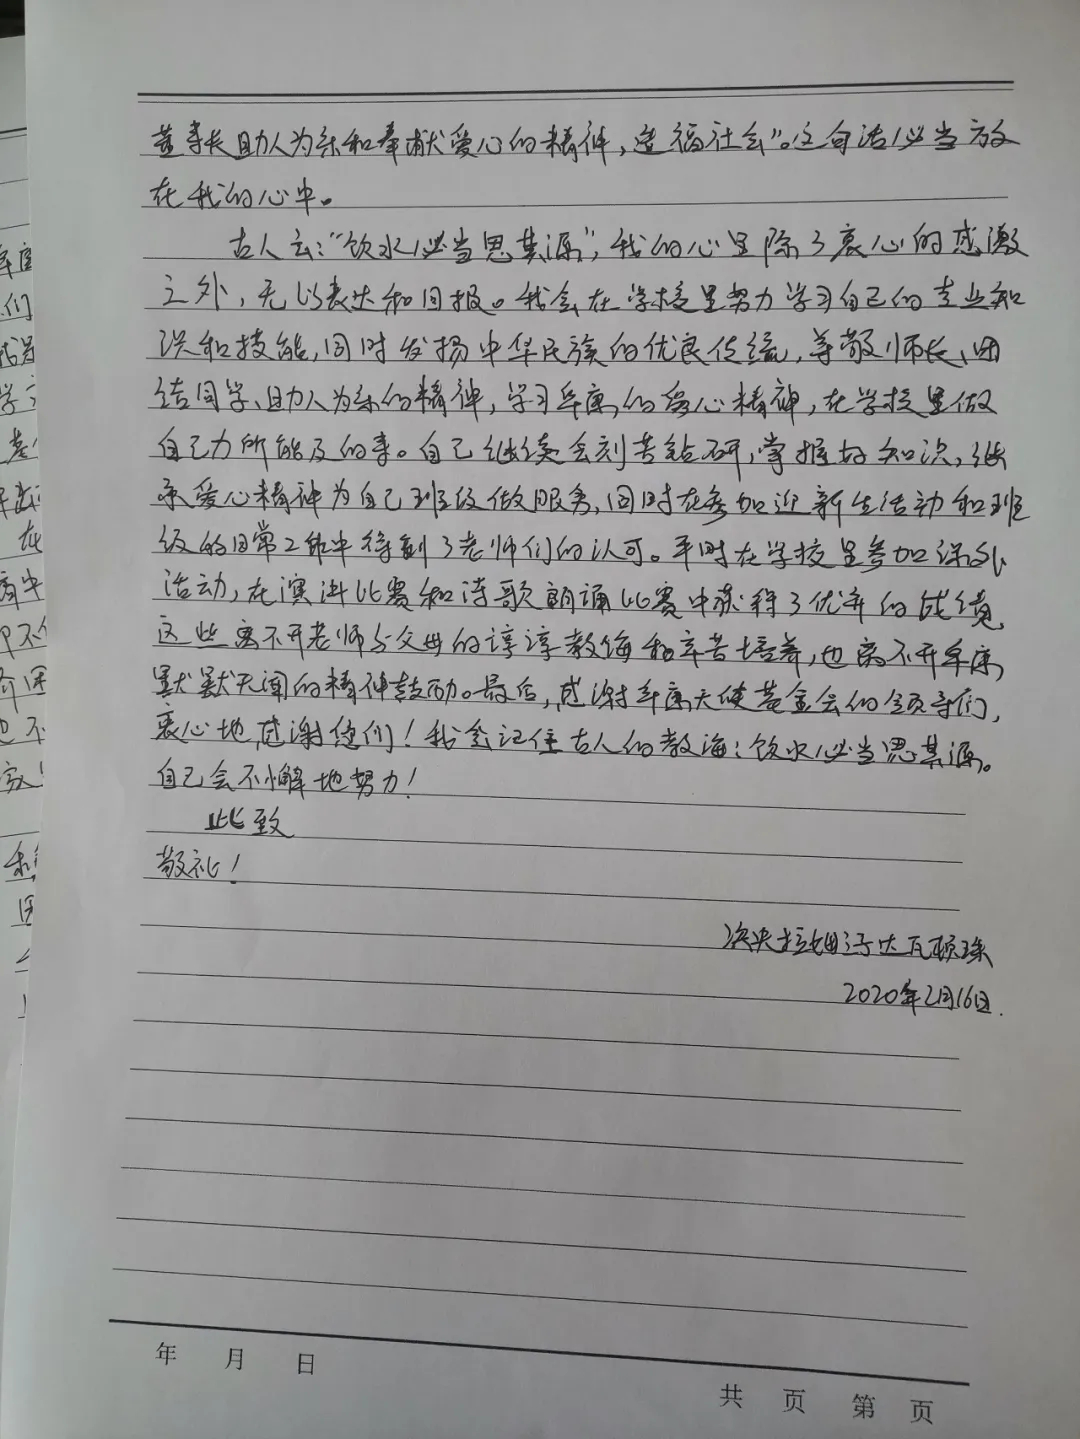 董事长助人为乐和奉献爱心的精神，造福社会”。这句话必当放
在我的心中。
古人云：“饮水必当思其源”，我的心里除了衷心的感激
之外，无以表达和回报。我会在学校里努力学习自己的专业知
识和技能，同时发扬中华民族的优良传统，尊敬师长、团
结同学、助人为乐的精神，学习年寓的爱心精神，在学校里做
自己力所能及的事。自己继续会刻苦钻研，掌握好知识，继
承爱心精神为自己班级做服务，同时在参加迎新生活动和班
级的日常工作中得到了老师们的认可。平时在学校里参加课外
活动，在演讲比赛和诗歌朗诵比赛中获得了优异的成绩，
这些离不开老师与父母的谆谆教悔和辛苦培养，也离不开年寓
默默无闻的精神鼓励。最后，感谢年寓天使基金会的领导们，
衷心地感谢您们！我会记住古人的教海：饮水必当思其源。
自己会不懈地努力！
此致
敬礼！
拉姆 达瓦顿珠
2020年2月16日.
年 月 日
共 页 第 页